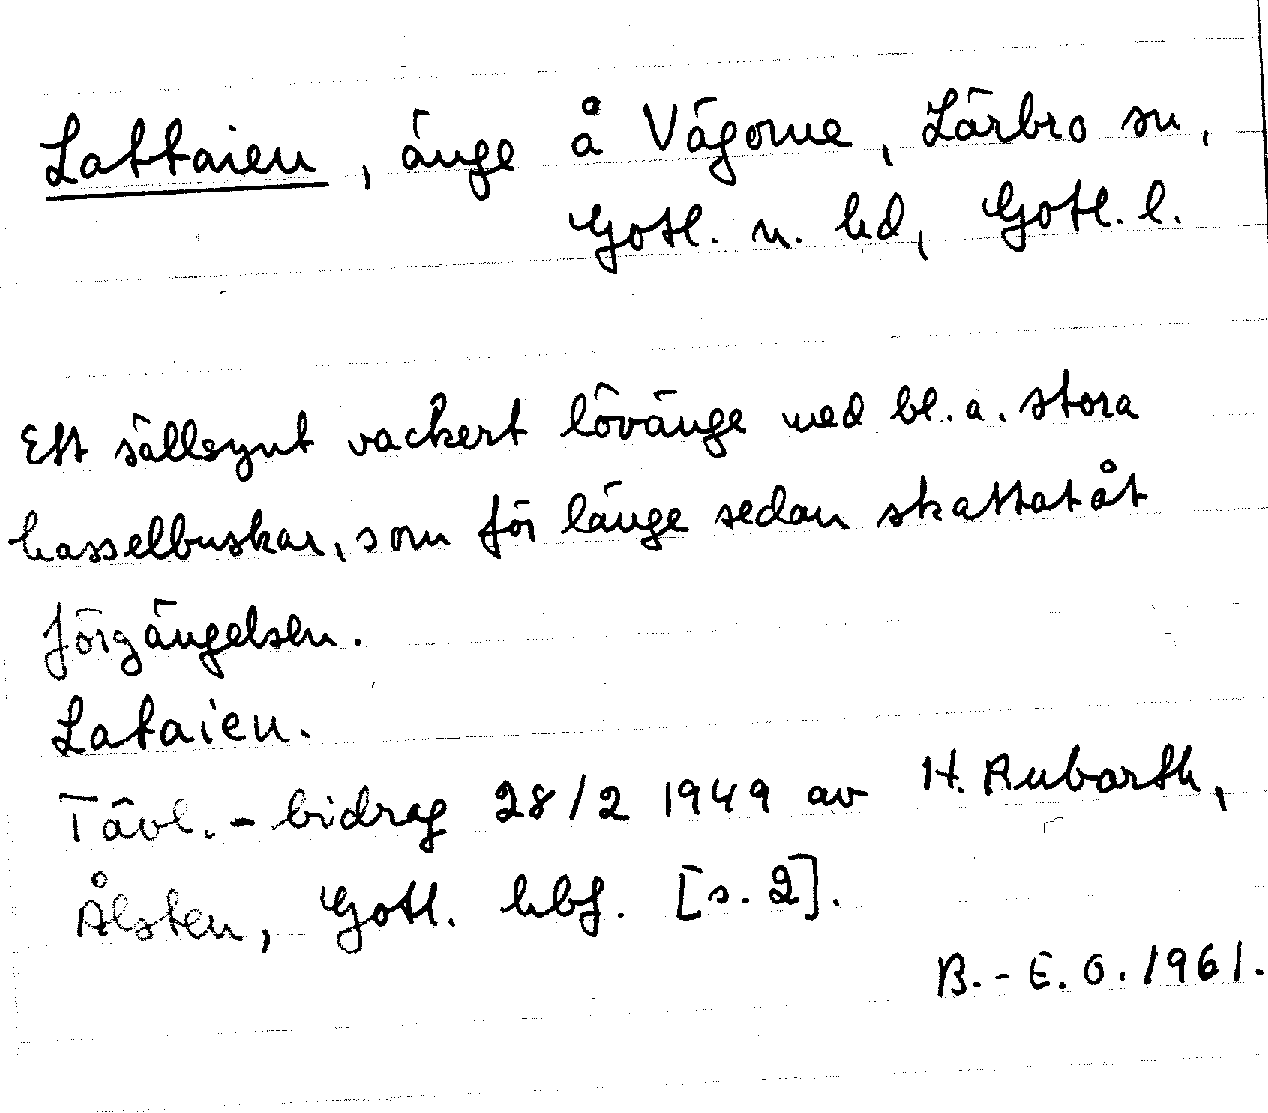 Lattaien, änge å Vägome, Lärbro sn,
Gotl. n. hd, Gotl. l.
Ett sällsynt vackert lövänge med bl. a. stora
hasselbuskar, som för länge sedan skattat åt
förgängelsen.
Lataien.
Tävl.-bidrag 28/2 1949 av H. Aubarth,
Ålsten, Gotl. hbf. [s. 2].
B.-E. O. 1961.